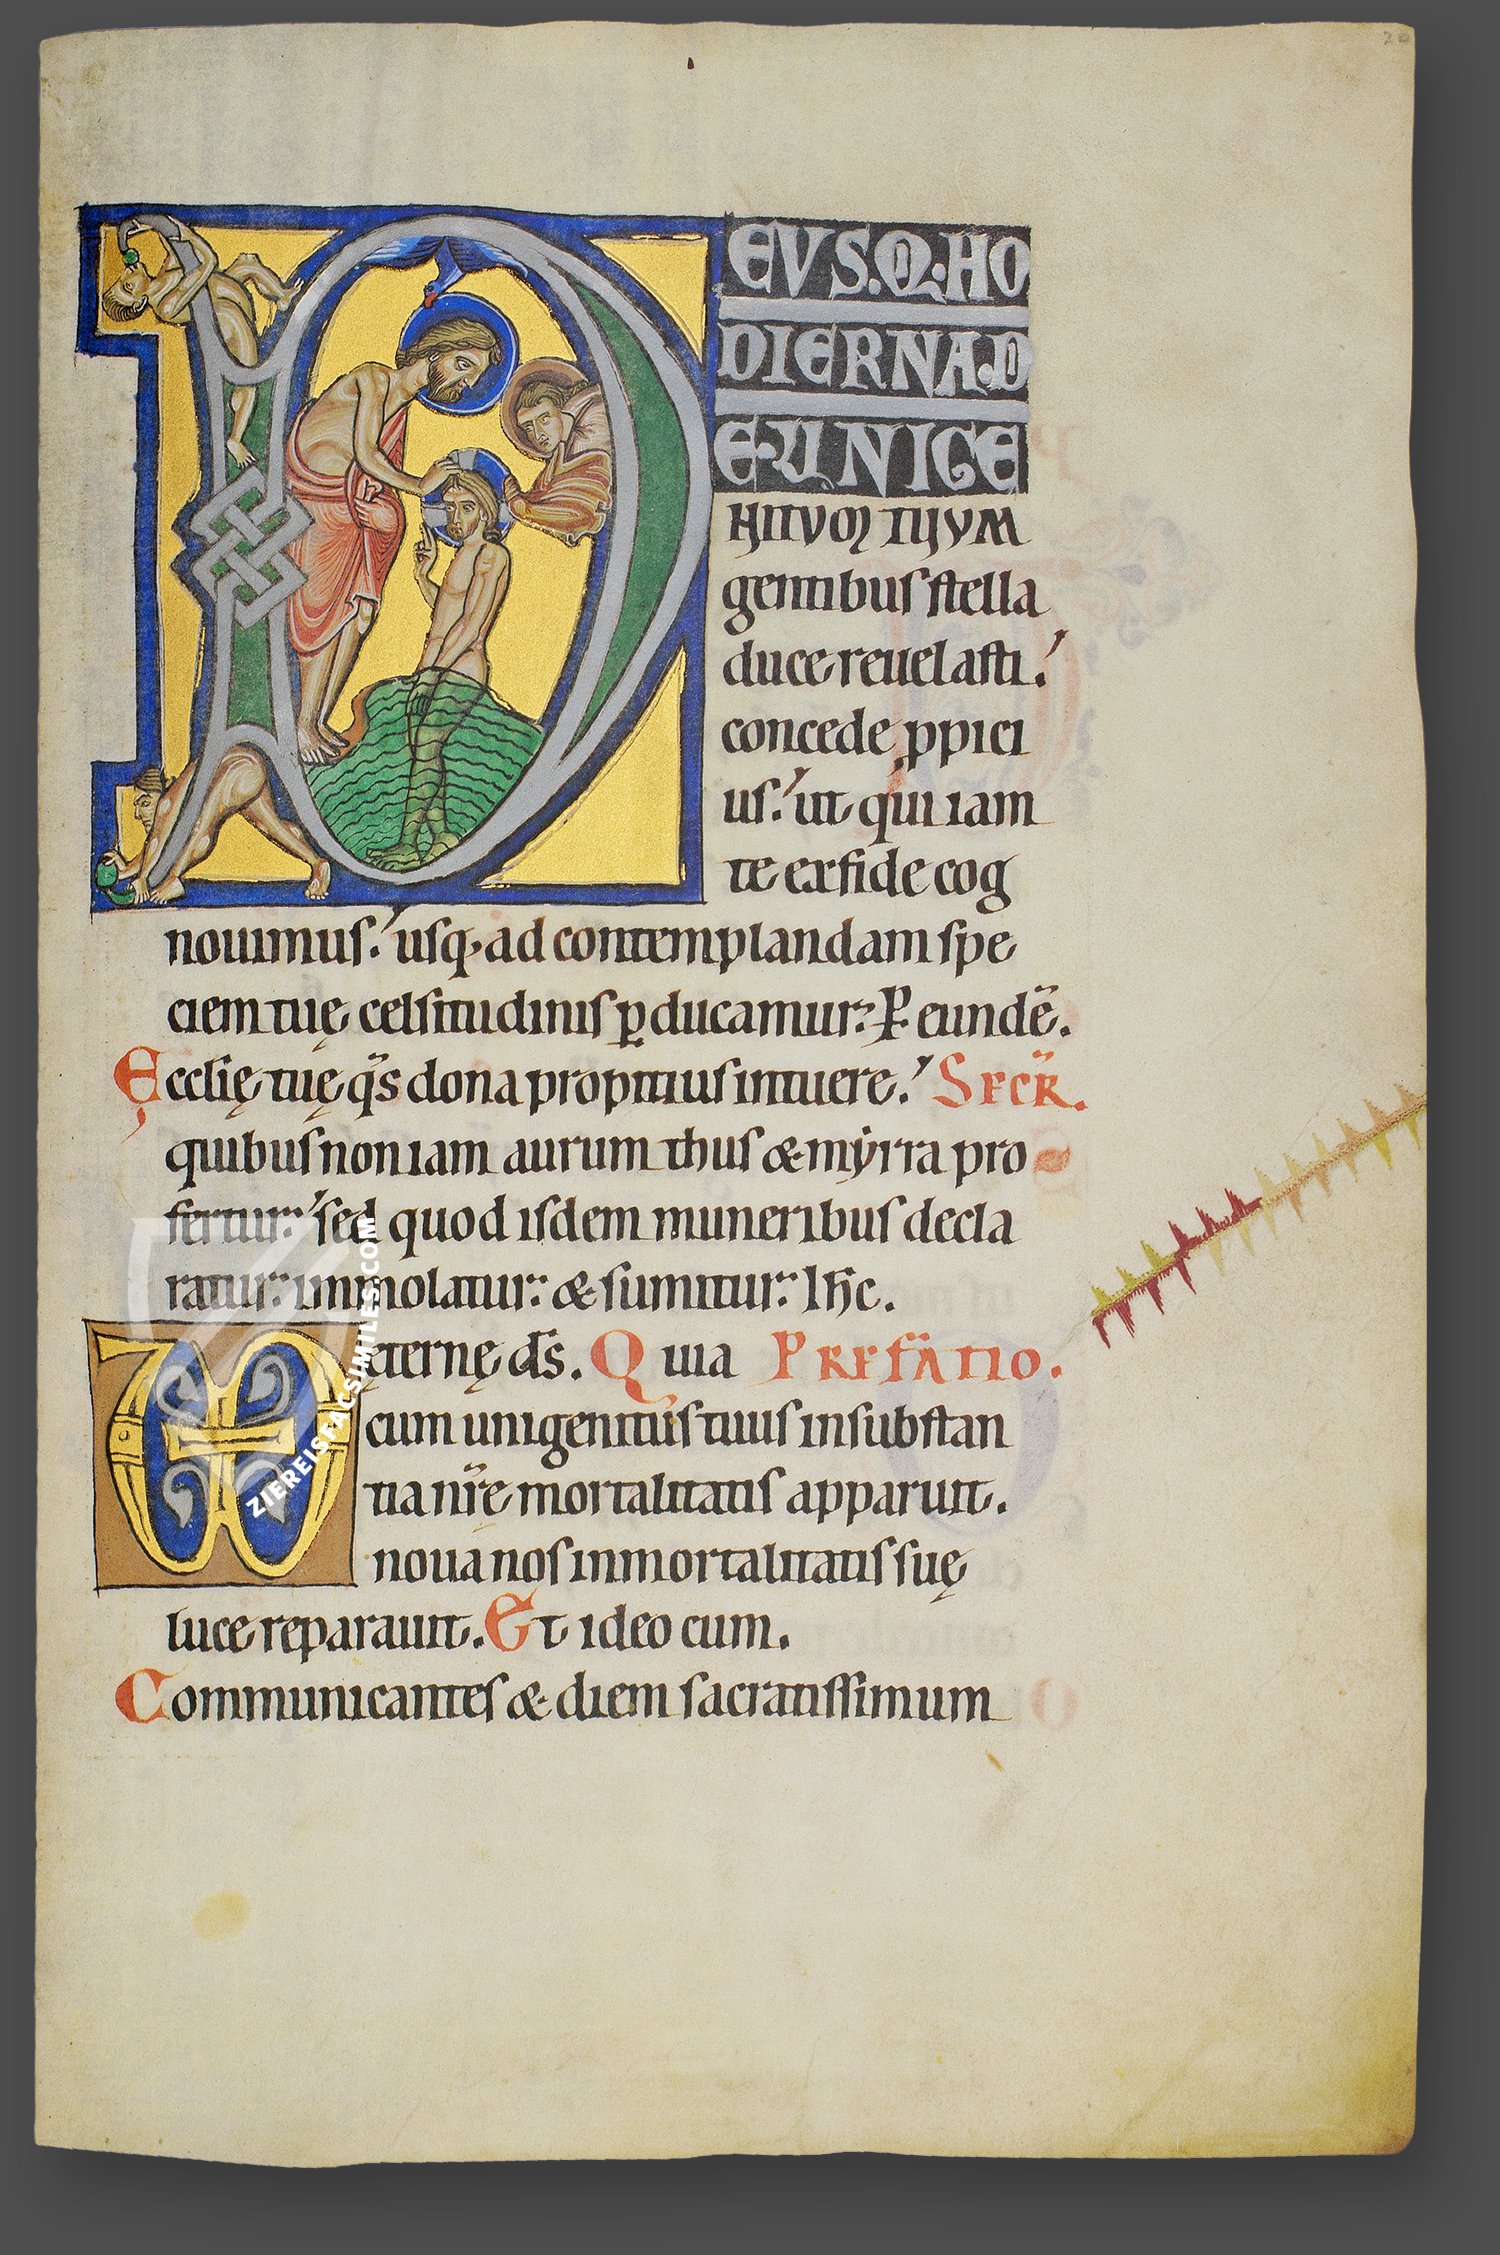 20
DEUS.Q.HO
DIERNA.D
E.UNIGE
NITVM TUUM
gentibus stella
duce reuelasti.
concede ppici
us. ut qui iam
te ex fide cog
nouimus. usq. ad contemplandam spe
ciem tuę celsitudinis pducamur. P. eundē.
Ecclię tuę qs dona propitius intuere. SECR.
quibus non iam aurum thus & myrra pro
fertur. sed quod isdem muneribus decla
ratur. immolatur. & sumitur. Ihc.
VD ęternę ds. Quia PREFATIO.
cum unigenitus tuus in substan
tia nre mortalitatis apparuit.
noua nos inmortalitatis suę
luce reparauit. Et ideo cum.
Communicantes & diem sacratissimum
ZIEREISFACSIMILES.COM